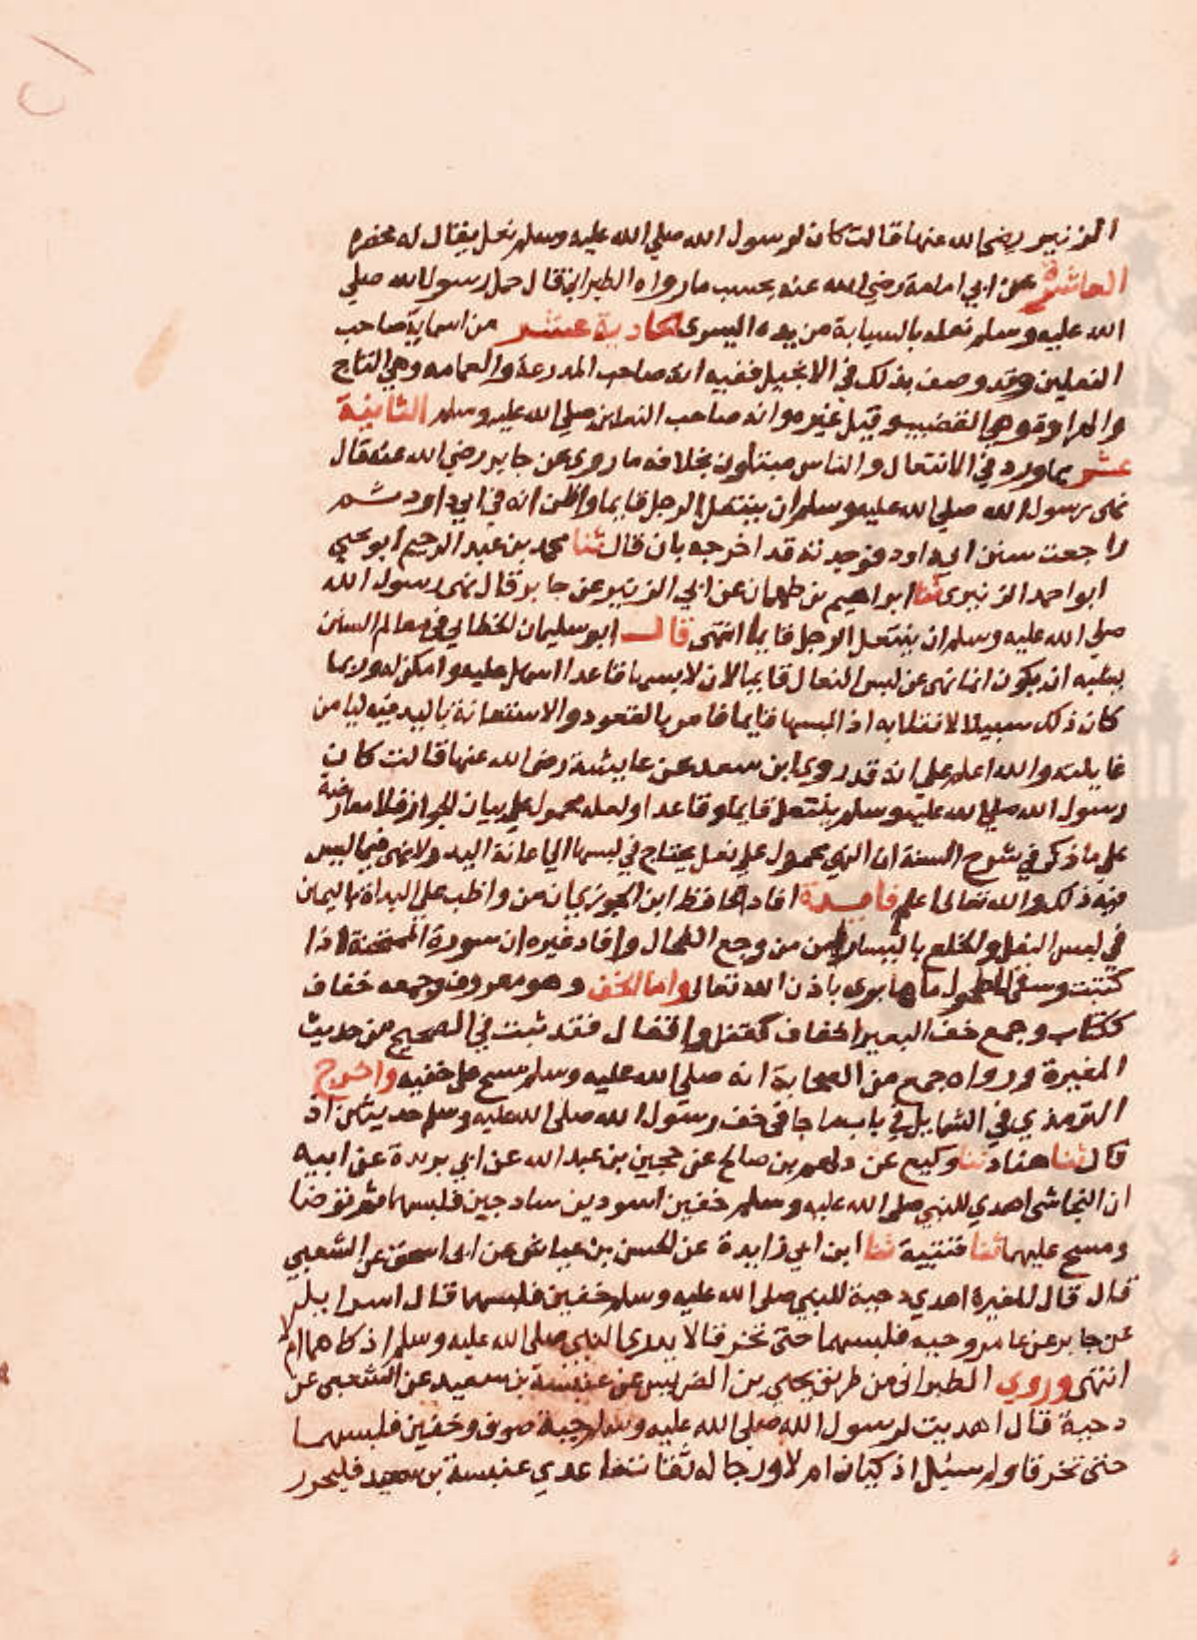 الزبير رضي الله عنها قالت كان لرسول الله صلي الله عليه وسلم نعل يقال له مخصره
العاشرة عن ابي امامة رضي الله عنه بحسب ما رواه الطبراني قال حمل رسول الله صلي
الله عليه وسلم نعله بالسبابة من يده اليسري الحادية عشر من اسمايه صاحب
النعلين وقد وصف بذلك في الانجيل ففيه انه صاحب المدرعة والعمامه وهي التاج
والهراوة وهي القضيب وقيل غيره وانه صاحب النعلين صلي الله عليه وسلم الثانية
عشر بما ورد في الانتعال والناس مبتلون بخلافه ما روي عن جابر رضي الله عنه قال
نهى رسول الله صلي الله عليه وسلم ان ينتعل الرجل قايما واظن انه في ابي داود ثم
راجعت سنن ابي داود فوجدته قد اخرجه بان قال ثنا محمد بن عبد الرحيم ابو يحيي
ابو احمد الزبيري ثنا ابراهيم بن طهمان عن ابي الزبير عن جابر قال نهى رسول الله
صلي الله عليه وسلم ان ينتعل الرجل قايما انتهى قال ابو سليمان الخطابي في معالم السنن
يشبه ان يكون انما نهى عن لبس النعال قايما لان لابسها قاعدا اسهل عليه وامكن له وربما
كان ذلك سببا لانقلابه اذا لبسها قايما فامر بالقعود والاستعانة باليد فيه ليامن
غايلته والله اعلم علي انه قد روي ابن سعد عن عايشة رضي الله عنها قالت كان
رسول الله صلي الله عليه وسلم ينتعل قايما وقاعدا ولعله محمول علي بيان الجواز فلا معارضة
علي ما ذكر في شرح السنة ان النهي محمول علي نعل يحتاج في لبسها الي اعانة اليد ولا نهى فيما ليس
فيه ذلك والله تعالى اعلم فايدة افاد الحافظ ابن الجوزي بان من واظب علي البداة باليمين
في لبس النعل والخلع باليسار امن من وجع الطحال وافاد غيره ان سورة الممتحنة اذا
كتبت وسقي المطحول ماها بري باذن الله تعالى واما الخف وهو معروف وجمعه خفاف
ككتاب وجمع خف البعير اخفاف كقفل واقفال فقد ثبت في الصحيح من حديث
المغيرة ورواه جمع من الصحابة انه صلي الله عليه وسلم مسح علي خفيه واخرج
الترمذي في الشمايل في باب ما جا في خف رسول الله صلى الله عليه وسلم حديثين اذ
قال ثنا هناد ثنا وكيع عن دلهم بن صالح عن حجين بن عبد الله عن ابي بريدة عن ابيه
ان النجاشي اهدي للنبي صلي الله عليه وسلم خفين اسودين ساذجين فلبسهما ثم توضا
ومسح عليهما ثنا قتيبة ثنا ابن ابي زايدة عن الحسن بن عياش عن ابي اسحق عن الشعبي
قال قال المغيرة اهدي دحية للنبي صلي الله عليه وسلم خفين فلبسهما قال اسرايل
عن جابر عن عامر وجبه فلبسهما حتى تخرقا لا يدري النبي صلي الله عليه وسلم اذكاهما ام لا
انتهى وروي الطبراني من طريق يحيي بن الضريس عن عنبسة بن سعيد عن الشعبي عن
دحية قال اهديت لرسول الله صلي الله عليه وسلم جبة صوف وخفين فلبسهما
حتى تخرقا ولم يسئل اذكيان ام لا ورجاله ثقات عدي عنبسة بن سعيد فليحرر